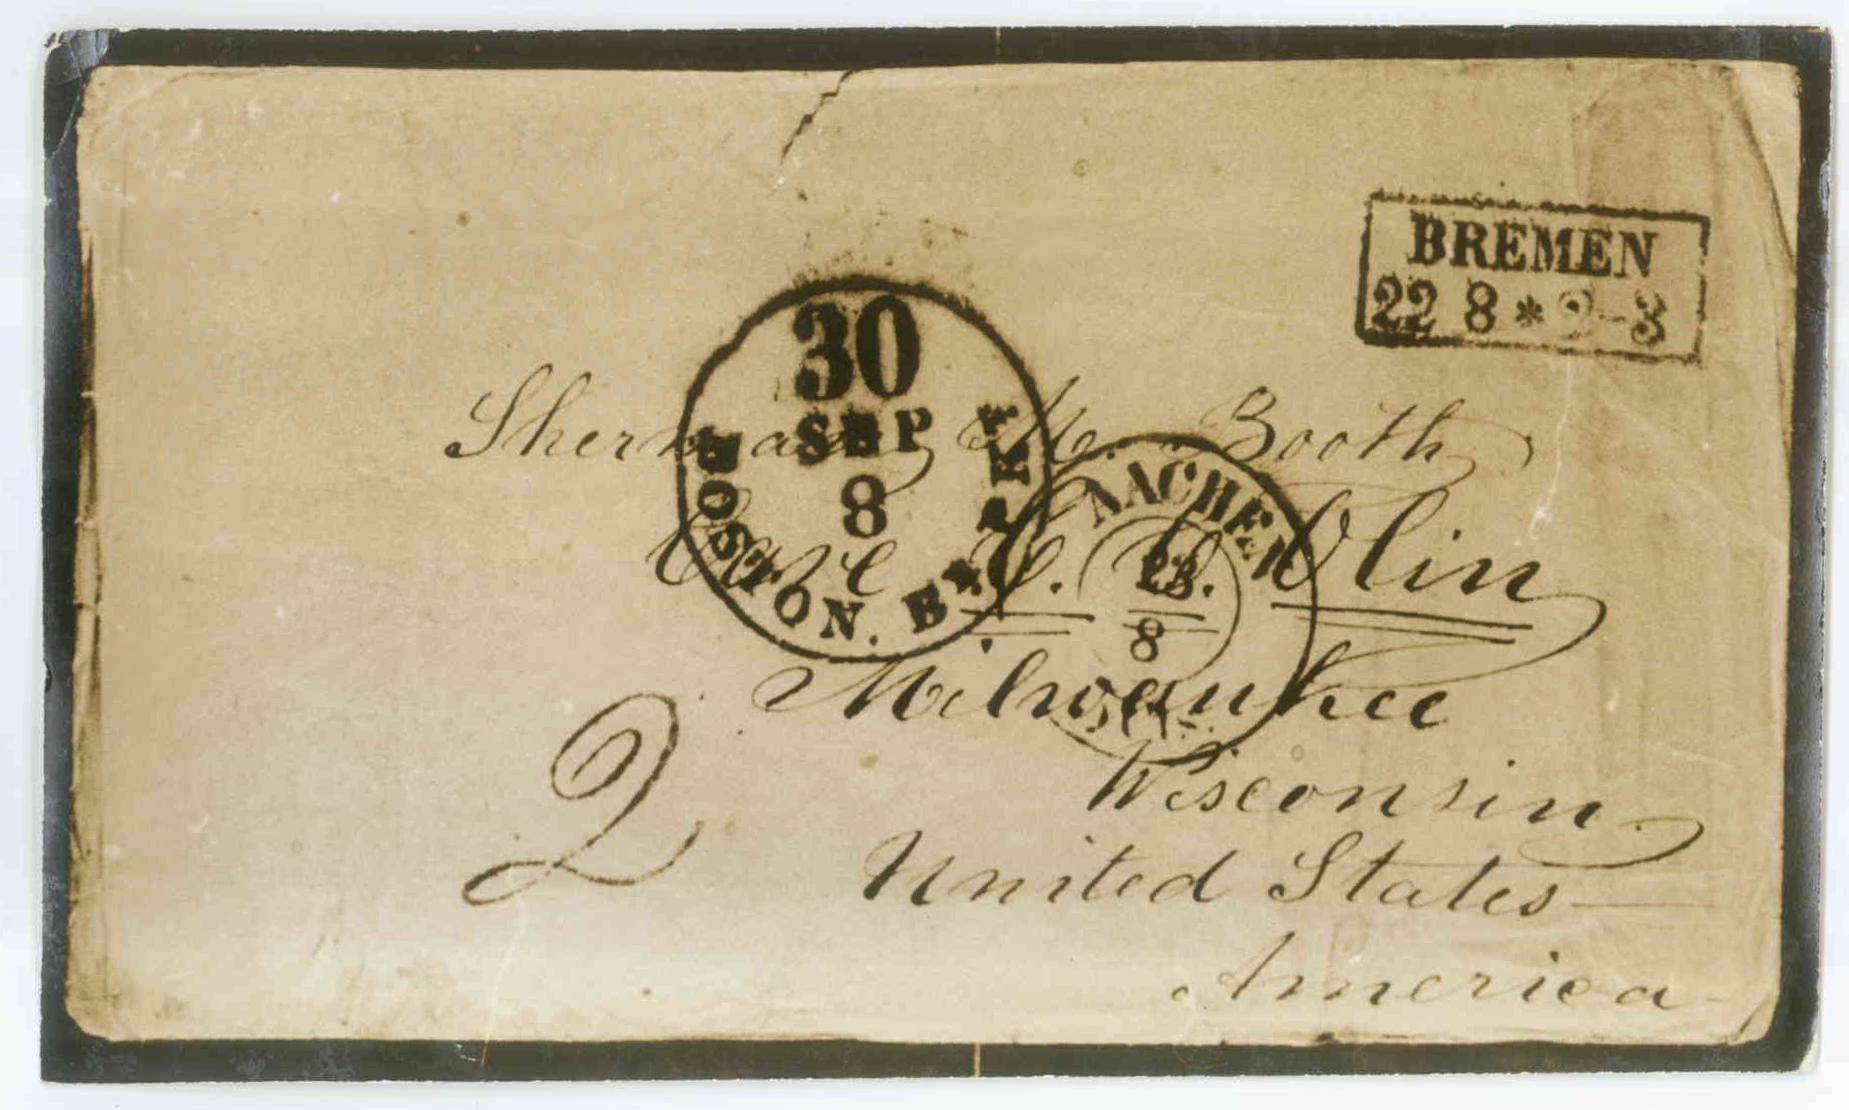 BREMEN
22 8 * 9-3
30
SEP
8
BOSTON. BR. PKT
Sherman M. Booth
Care Olin
AACHEN
23
8
Milwaukee
Wisconsin
United States
America
2